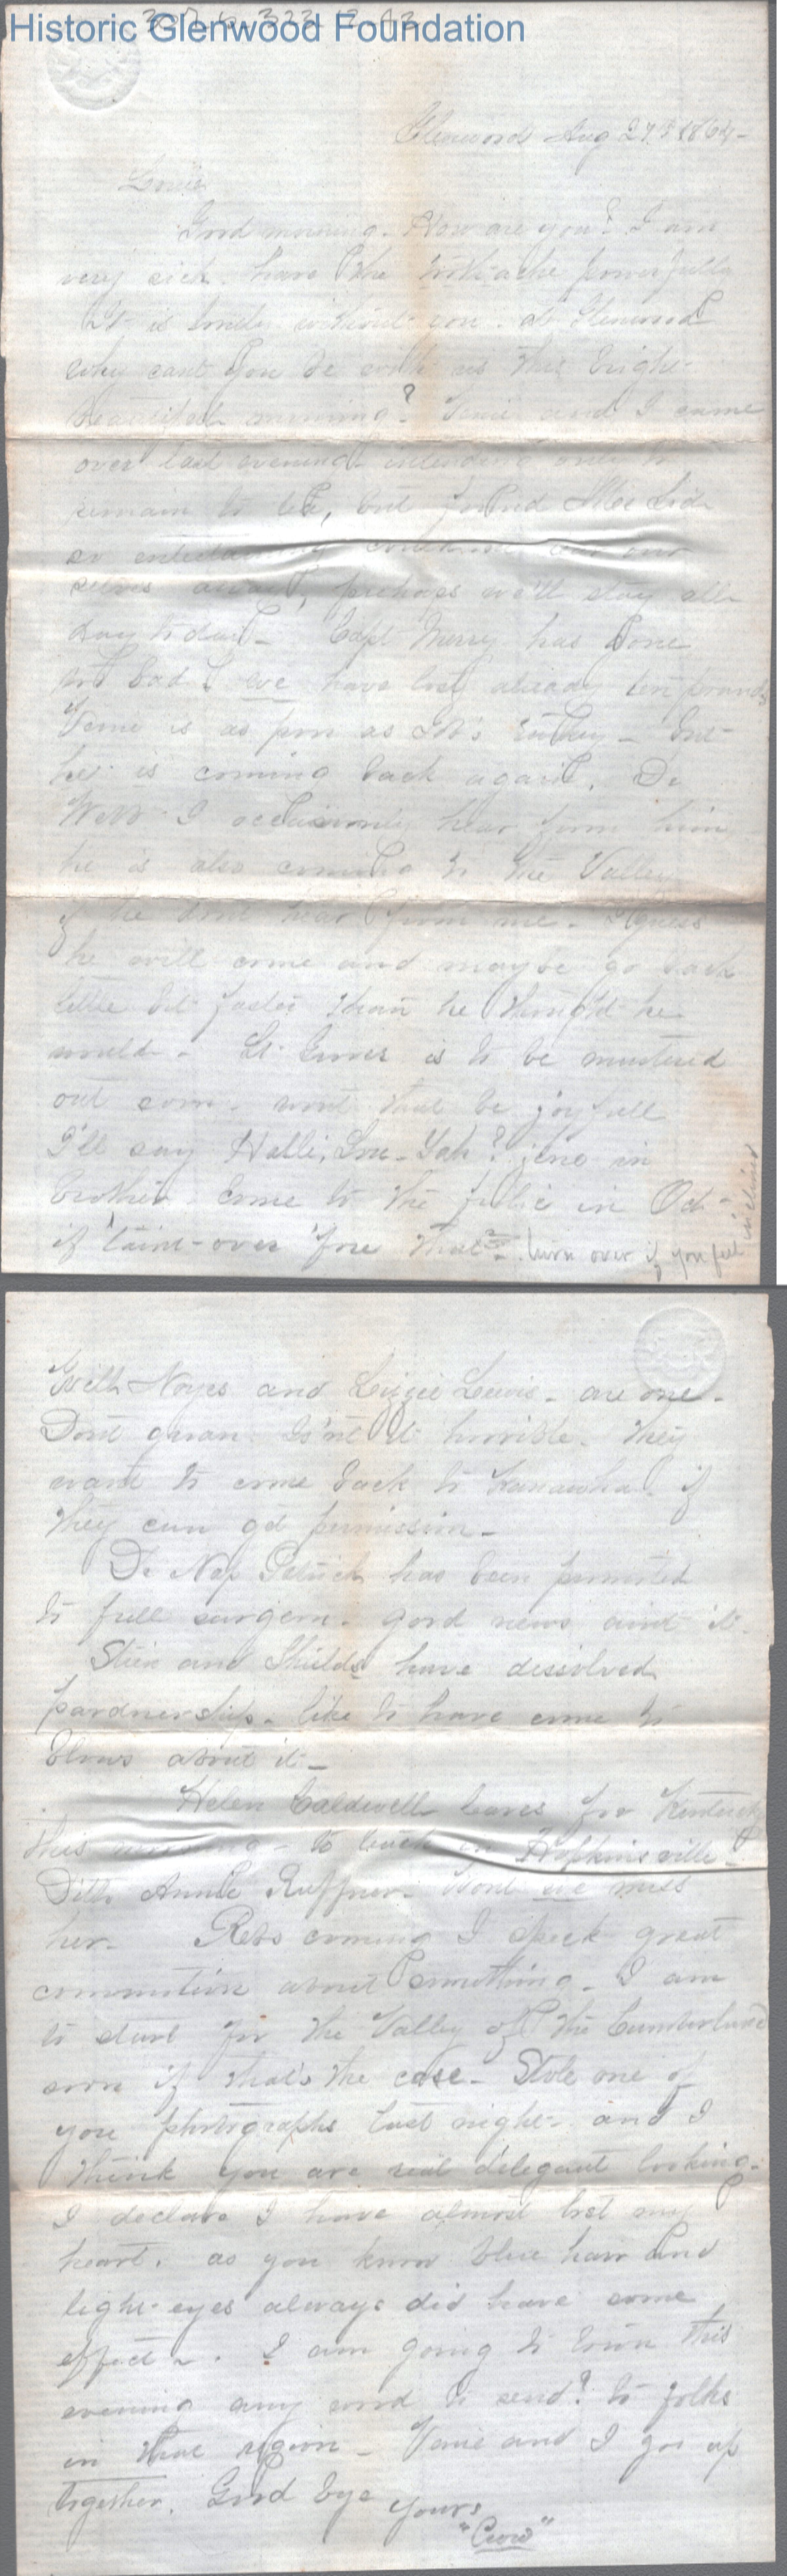 307.6.323.12-13
Historic Glenwood Foundation
Glenwood Aug 27th 1864-
Good morning. How are you? I am
very sick. have the toothache powerfully
It is lonely without you at Glenwood
why cant you be with us this bright
beautiful morning? Venie and I came
over last evening intending only to
remain to tea, but found Miss Lid
so entertaining could not tear our
selves away, perhaps we'll stay all
day to day - Capt Merry has gone
too bad we have lost already ten pounds
Venie is as poor as Job's turkey - but
he is coming back again. Dr
Webb I occasionly hear from him
he is also coming to the Valley
if he dont hear from me. I guess
he will come and maybe go back
little bit faster than he thought he
would - Lt. is to be mustered
out soon - wont that be joyfull
I'll say Halle, Lou-Yah? jine in
brother. Come to the in Oct-
if 'taint over 'fore that - turn over if you feel inclined
Will Noyes and Lizzie Lewis - are one -
Dont groan. Is'nt it horrible. They
want to come back to Kanawha if
they can get permission -
Dr Nap Patrick has been promoted
to full surgeon. good news aint it -
Stein and Shields have dissolved
pardnership - like to have come to
blows about it -
Helen Caldwell leaves for Kentucky
this morning - to teach in Hopkinsville -
Ditto Annie Ruffner. Wont we miss
her - Rebs coming I speck great
commotion about something - I am
to start for the Valley of the Cumberland
soon if that's the case - Stole one of
your photographs last night - and I
think you are real d'elegant looking -
I declare I have almost lost my
heart. as you know blue hair and
light eyes always did have some
effect. I am going to town this
evening any word to send? to folks
in that region - Venie and I go up
together. Good bye
Yours
"Crow"